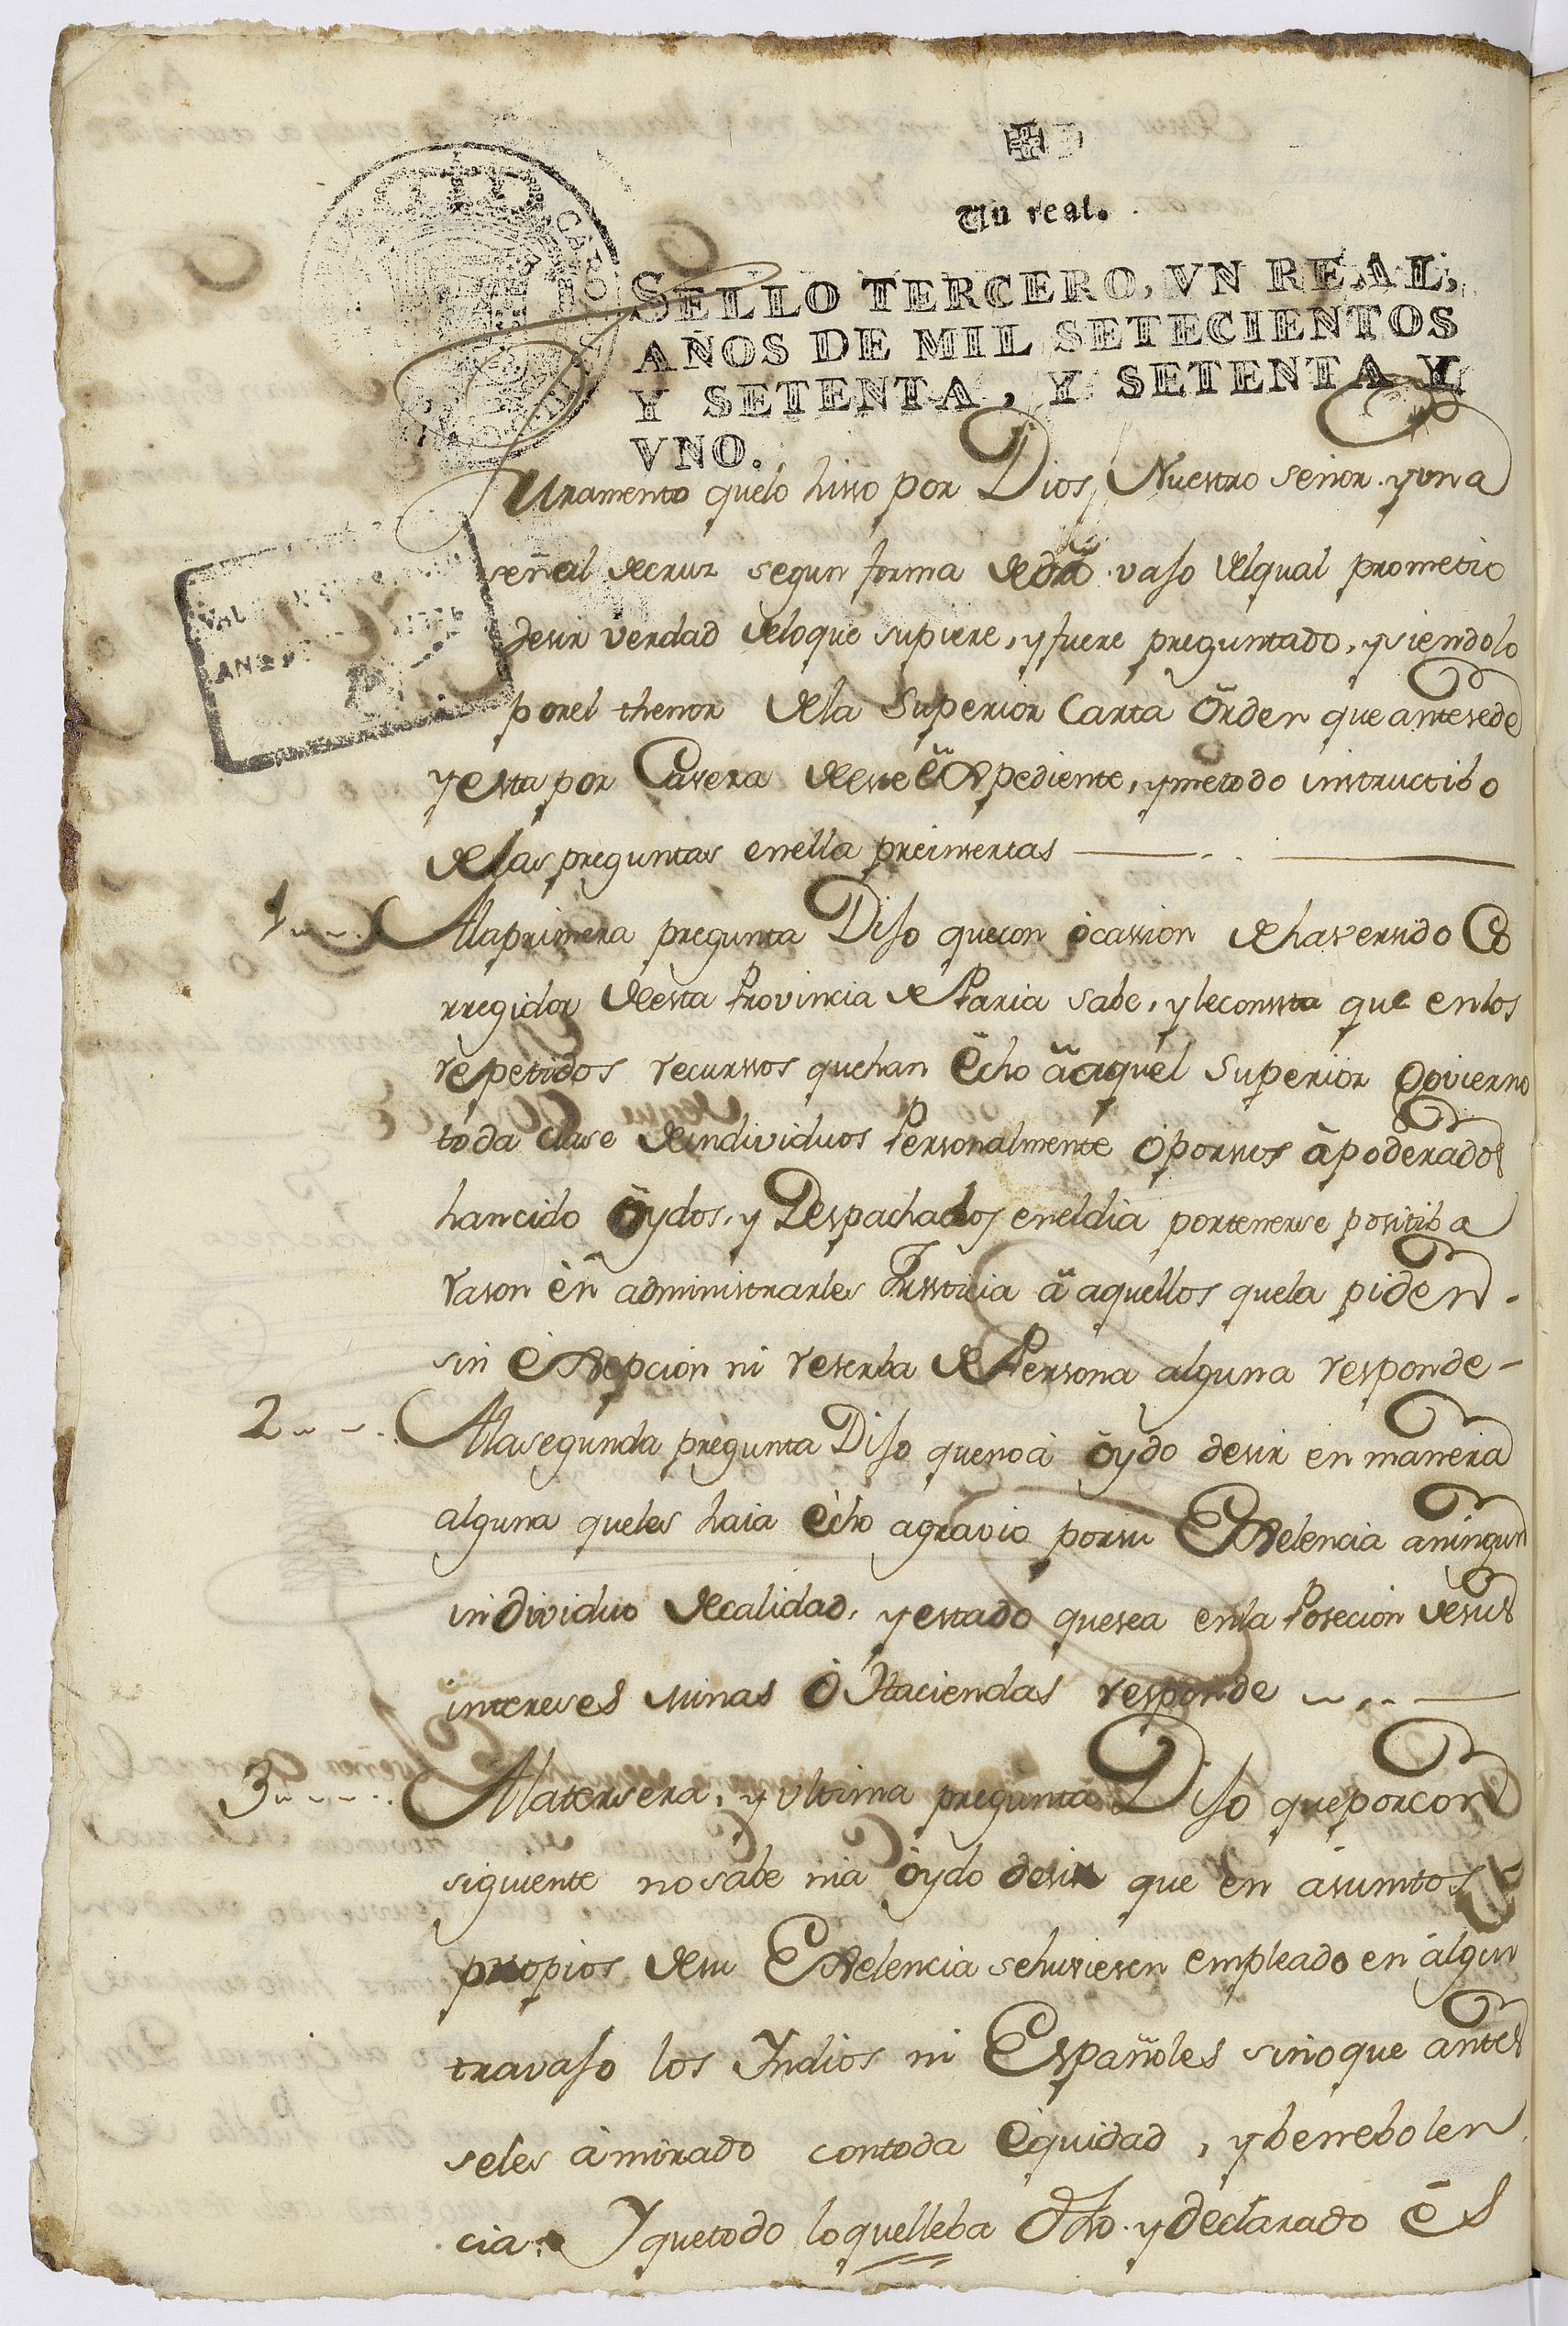 Un real.
SELLO TERCERO, VN REAL,
AÑOS DE MIL SETECIENTOS
Y SETENTA, Y SETENTA Y
VNO.
Juramento quelo hisso por Dios Nuestro señor. y una
señal decruz segun forma dedro. vajo delqual prometio
desir verdad deloque supiere, y fuere preguntado, y siendolo
porel thenor dela Superior Carta òrden que antesede
y esta por Cavesa deeste èxpediente, y metodo instructibo
delas preguntas enella preinsertas
1 Alaprimera pregunta Dijo quecon òcassion dehaversido Co
rregidor deesta Provincia de Paria sabe, y leconsta que enlos
repetidos recurssos quehan ècho àaquel Superior Govierno
toda clase deindividuos Personalmente òporsus àpoderados
hancido òydos, y Despachados eneldia portenerse positiba
rason èn administrarles Jussticia à aquellos quela piden.
sin èxsepcion ni reserba de Persona alguna responde-
2 Alasegunda pregunta Dijo quenoà òydo desir en manera
alguna queles haia ècho agravio porsu Exselencia aningun
individuo decalidad, y estado quesea enla Posecion desus
intereses minas ò Haciendas responde
3 Alatersera, y ultima pregunta Dijo queporcon
siguiente nosabe nia òydo desir que èn àsumtos
propios desu Exselencia sehuviesen empleado en àlgun
travajo los Yndios ni Españoles sinoque antes
seles àmirado contoda èquidad, y benebolen
cia. Y quetodo loquelleba dho. y declarado ès